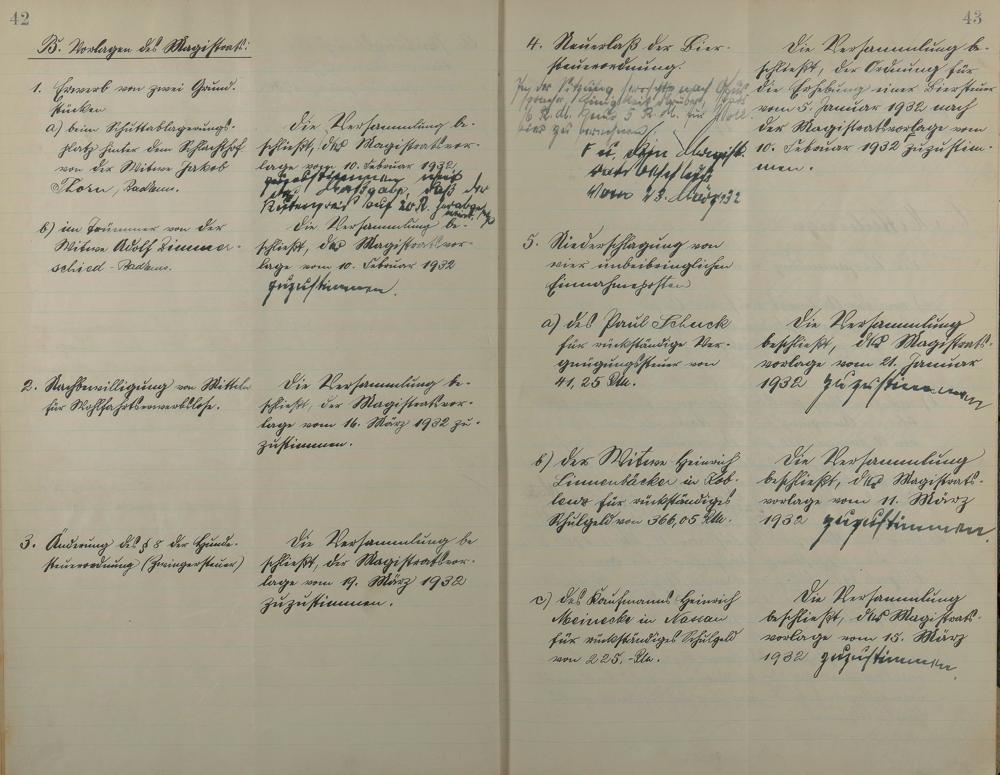 42
B. Vorlagen des Magistrats:
1. Erwerb von zwei Grund-
stücken
a) beim Schuttablagerungs-
platz hinter dem Schlachthof
von der Witwe Jakob
Thorn,
Die Versammlung be-
schließt, der Magistratsvor-
lage vom 10. Februar 1932
zuzustimmen mit
der Maßgabe, daß der
Rutenpreis auf 20 R. herabgesetzt
wird.
b) im Trümmer von der
Witwe Adolf Zimmer-
schied
Die Versammlung be-
schließt, der Magistratsvor-
lage vom 10. Februar 1932
zuzustimmen.
2. Nachbewilligung von Mitteln
für Wohlfahrtserwerbslose.
Die Versammlung be-
schließt, der Magistratsvor-
lage vom 16. März 1932 zu-
zustimmen.
3. Änderung des § 8 der Hunde-
steuerordnung (Zwingersteuer)
Die Versammlung be
schließt, der Magistratsvor-
lage vom 19. März 1932
zuzustimmen.
43
4. Neuerlaß der Bier-
steuerordnung.
In der Sitzung
zu berechnen
u. dem Magist.
vom 23. März 1932
Die Versammlung be-
schließt, der Ordnung für
die Erhebung einer Biersteuer
vom 5. Januar 1932 nach
der Magistratsvorlage vom
10. Februar 1932 zuzustim-
men.
5. Niederschlagung von
vier unbeibringlichen
Einnahmeposten
a) des Paul Schuck
für rückständige Ver-
gnügungssteuer von
41,25 Rm.
Die Versammlung
beschließt, der Magistrats-
vorlage vom 21. Januar
1932 zuzustimmen
b) der Witwe Heinrich
Linnenbäcker in Kob-
lenz für rückständiges
Schulgeld von 366,05 Rm.
Die Versammlung
beschließt, der Magistrats-
vorlage vom 11. März
1932 zuzustimmen.
c) des Kaufmanns Heinrich
Meinecke in Nassau
für rückständiges Schulgeld
von 225,- Rm.
Die Versammlung
beschließt, der Magistrats-
vorlage vom 15. März
1932 zuzustimmen.